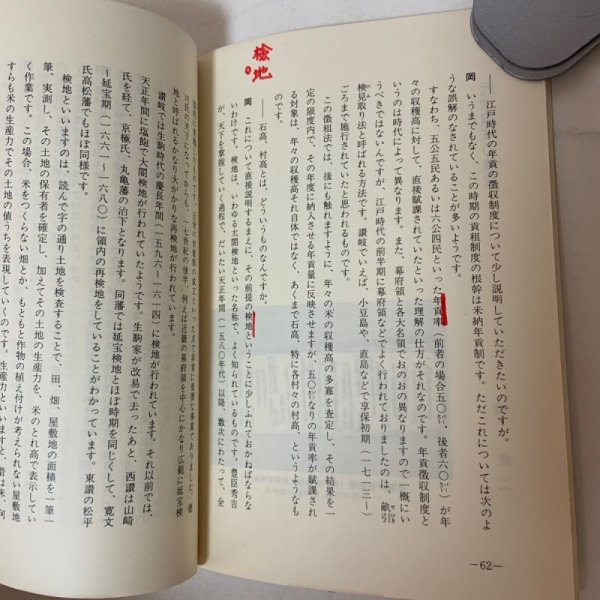 検地
── 江戸時代の年貢の徴収制度について少し説明していただきたいのですが。
岡 いうまでもなく、この時期の貢租制度の根幹は米納年貢制です。ただこれについては次のよ
うな誤解のなされていることが多いようです。
すなわち、五公五民あるいは六公四民といった年貢率(前者の場合五〇㌫、後者六〇㌫)が年
々の収穫高に対して、直接賦課されていたといった理解の仕方がそれなのです。年貢徴収制度と
いうのは時代によって異なります。また、幕府領と各大名領でおのおの異なりますので一概にい
うべきではないんですが、江戸時代の前半期に幕府領などでよく行われておりましたのは、畝引
検見取り法と呼ばれる方法です。讃岐でいえば、小豆島や、直島などで享保初期(一七一三〜)
ごろまで施行されていたと思われるものです。
この徴租法では、後にも触れますように、年々の米の収穫高の多寡を査定し、その結果を一
定の限度内で、その年度に納入させる年貢量に反映させますが、五〇㌫なりの年貢率が賦課され
る対象は、年々の収穫高それ自体ではなく、あくまで石高、特に各村々の村高、というようなも
のです。
── 石高、村高とは、どういうものなんですか。
岡 これについて直接説明するまえに、その前提の検地ということに少しふれておかねばならな
いわけです。検地は、いわゆる太閤検地といった名称で、よく知られているものです。豊臣秀吉
が、天下を掌握していく過程で、だいたい天正年間(一五八〇年代)以降、数次にわたって、全
─62─
川氏の天下になってからも、十七世紀の後半、例えば近畿の幕府領を中心にかなり広範に延宝検
地と呼ばれるかなり大がかりな再検地が行われています。
讃岐では生駒時代の慶長年間(一五九六〜一六一四)に検地が行われています。それ以前では、
天正年間に塩飽で太閤検地が行われていたようです。生駒家が改易で去ったあと、西讃は山崎
氏を経て、京極氏、丸亀藩の治下となります。同藩では延宝検地とほぼ時期を同じくして、寛文
〜延宝期(一六六一〜一六八〇)に領内の再検地をしていることがわかっています。東讃の松平
氏高松藩でもほぼ同様です。
検地といいますのは、読んで字の通り土地を検査することで、田、畑、屋敷地の面積を一筆一
筆、実測し、その土地の保有者を確定し、加えてその土地の生産力を、米のとれ高で表示してい
く作業です。この場合、米をつくらない畑とか、もともと作物の植え付けが考えられない屋敷地
すらも米の生産力でその土地の値うちを表現していくのです。